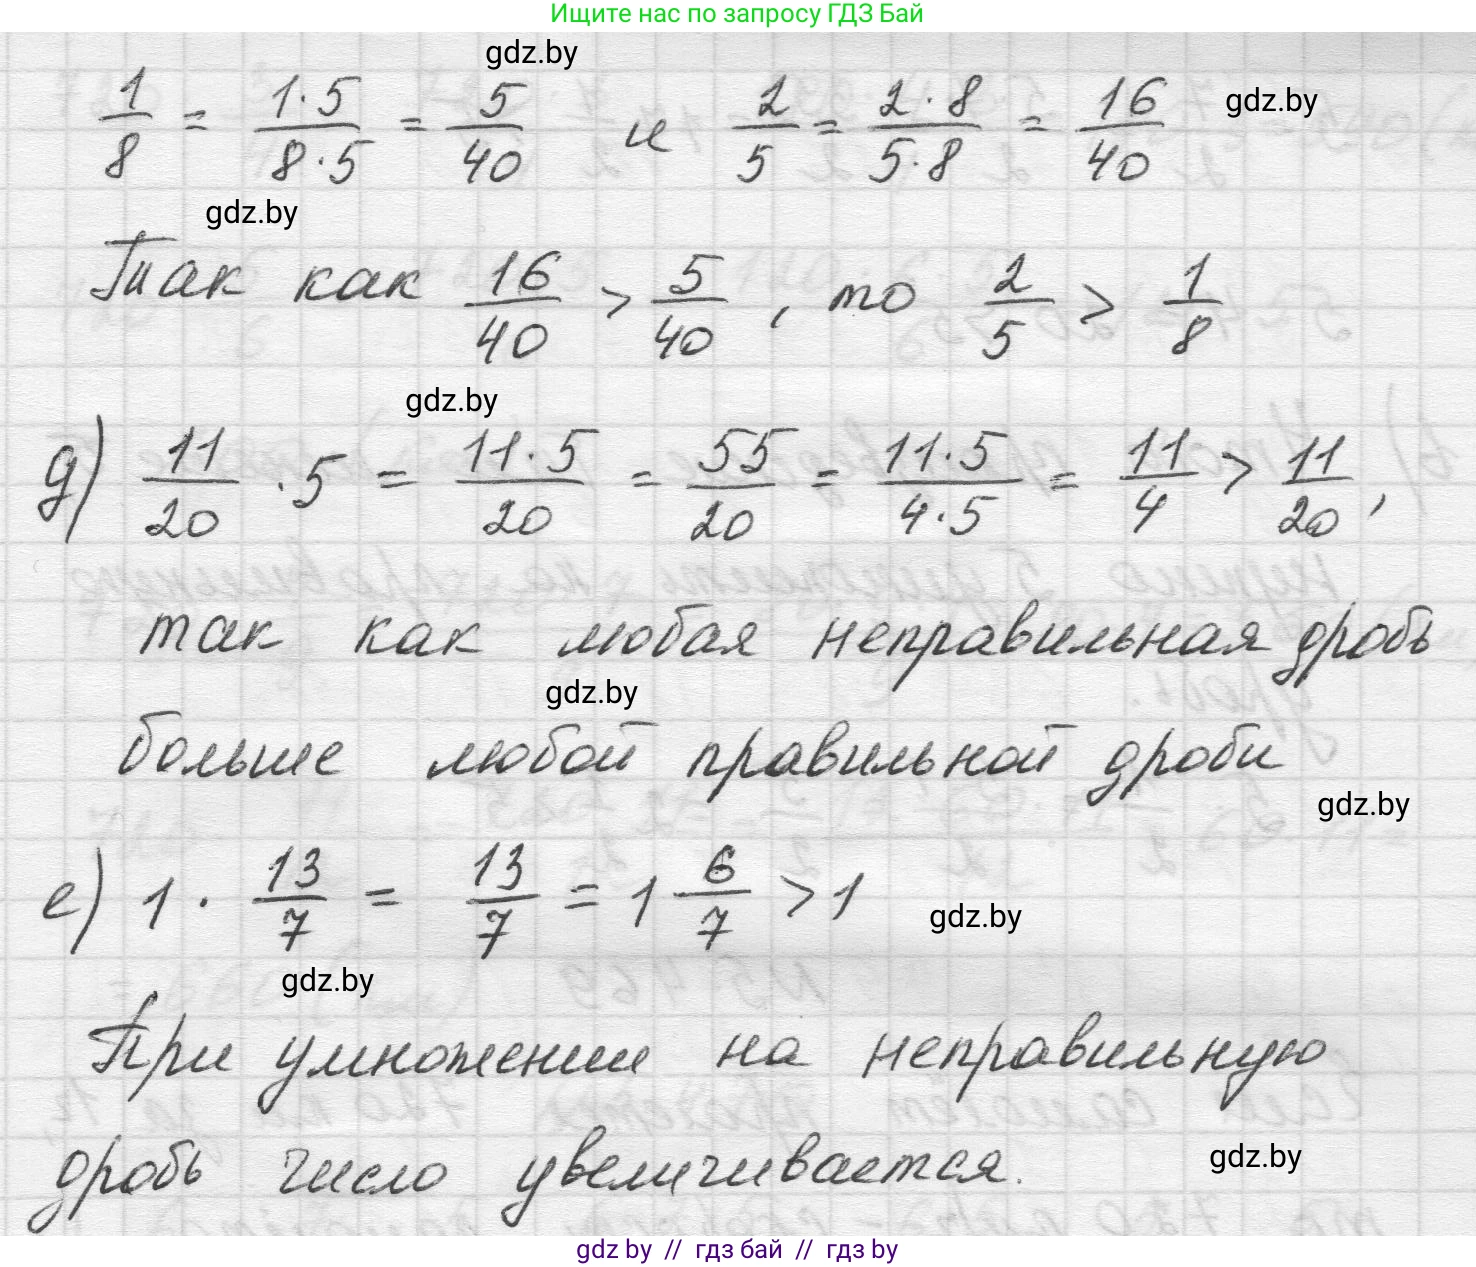 Ищите нас по запросу ГДЗ Бай
gdz.by
1/8 = 1·5/8·5 = 5/40 и 2/5 = 2·8/5·8 = 16/40
gdz.by
gdz.by
Так как 16/40 > 5/40, то 2/5 > 1/8
gdz.by
д) 11/20 · 5 = 11·5/20 = 55/20 = 11·5/4·5 = 11/4 > 11/20,
так как любая неправильная дробь
gdz.by
больше любой правильной дроби
gdz.by
е) 1 · 13/7 = 13/7 = 1 6/7 > 1
gdz.by
gdz.by
При умножении на неправильную
дробь число увеличивается.
gdz.by
gdz by // гдз бай // гдз by